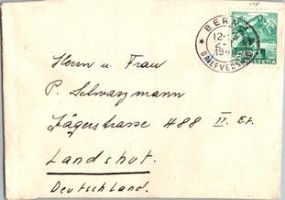 BERN
12-
194
BRIEFVERSAND
HELVETIA
Herrn u. Frau
P. Schwarzmann
Jägerstrasse 488 II. Et.
Landshut.
Deutschland.